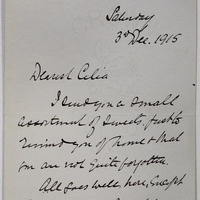 Saturday
3rd Dec. 1915
Dearest Celia
I send you a small
assortment of sweets, just to
remind you of home & that
you are not quite forgotten.
All goes well here, except